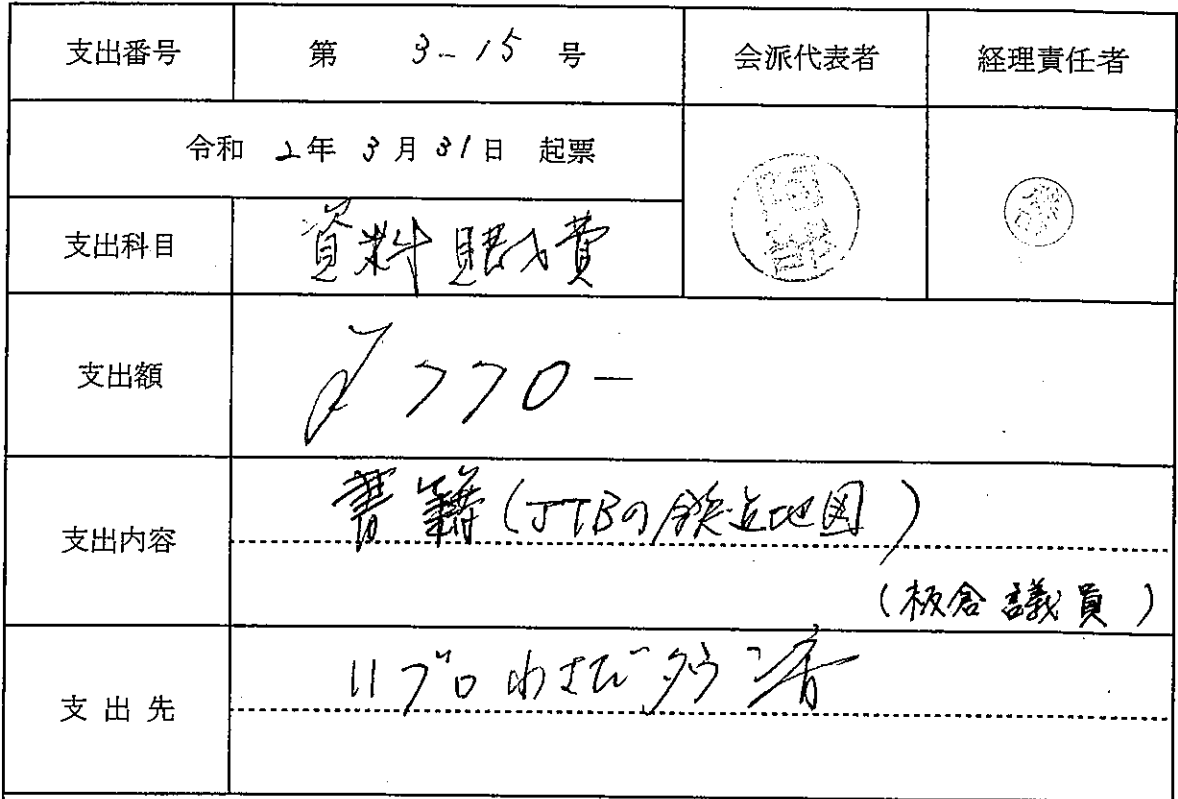 支出番号 第 3-15 号 会派代表者 経理責任者
令和 2年 3月 31日 起票
支出科目 資料購入費
支出額 ¥770-
支出内容 書籍(JTBの鉄道地図)
(板倉議員)
支出先 リブロ